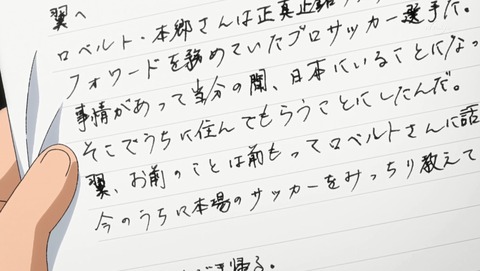 翼へ
ロベルト・本郷さんは正真正銘
フォワードを務めていたプロサッカー選手だ。
事情があって当分の間、日本にいることになっ
そこでうちに住んでもらうことにしたんだ。
翼、お前のことは前もってロベルトさんに話
今のうちに本場のサッカーをみっちり教えて
帰る。